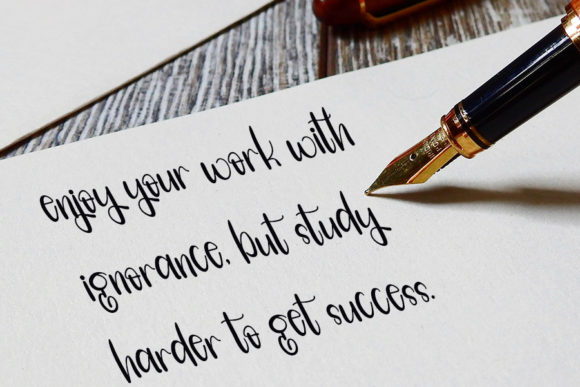 enjoy your work with
ignorance, but study
harder to get success.